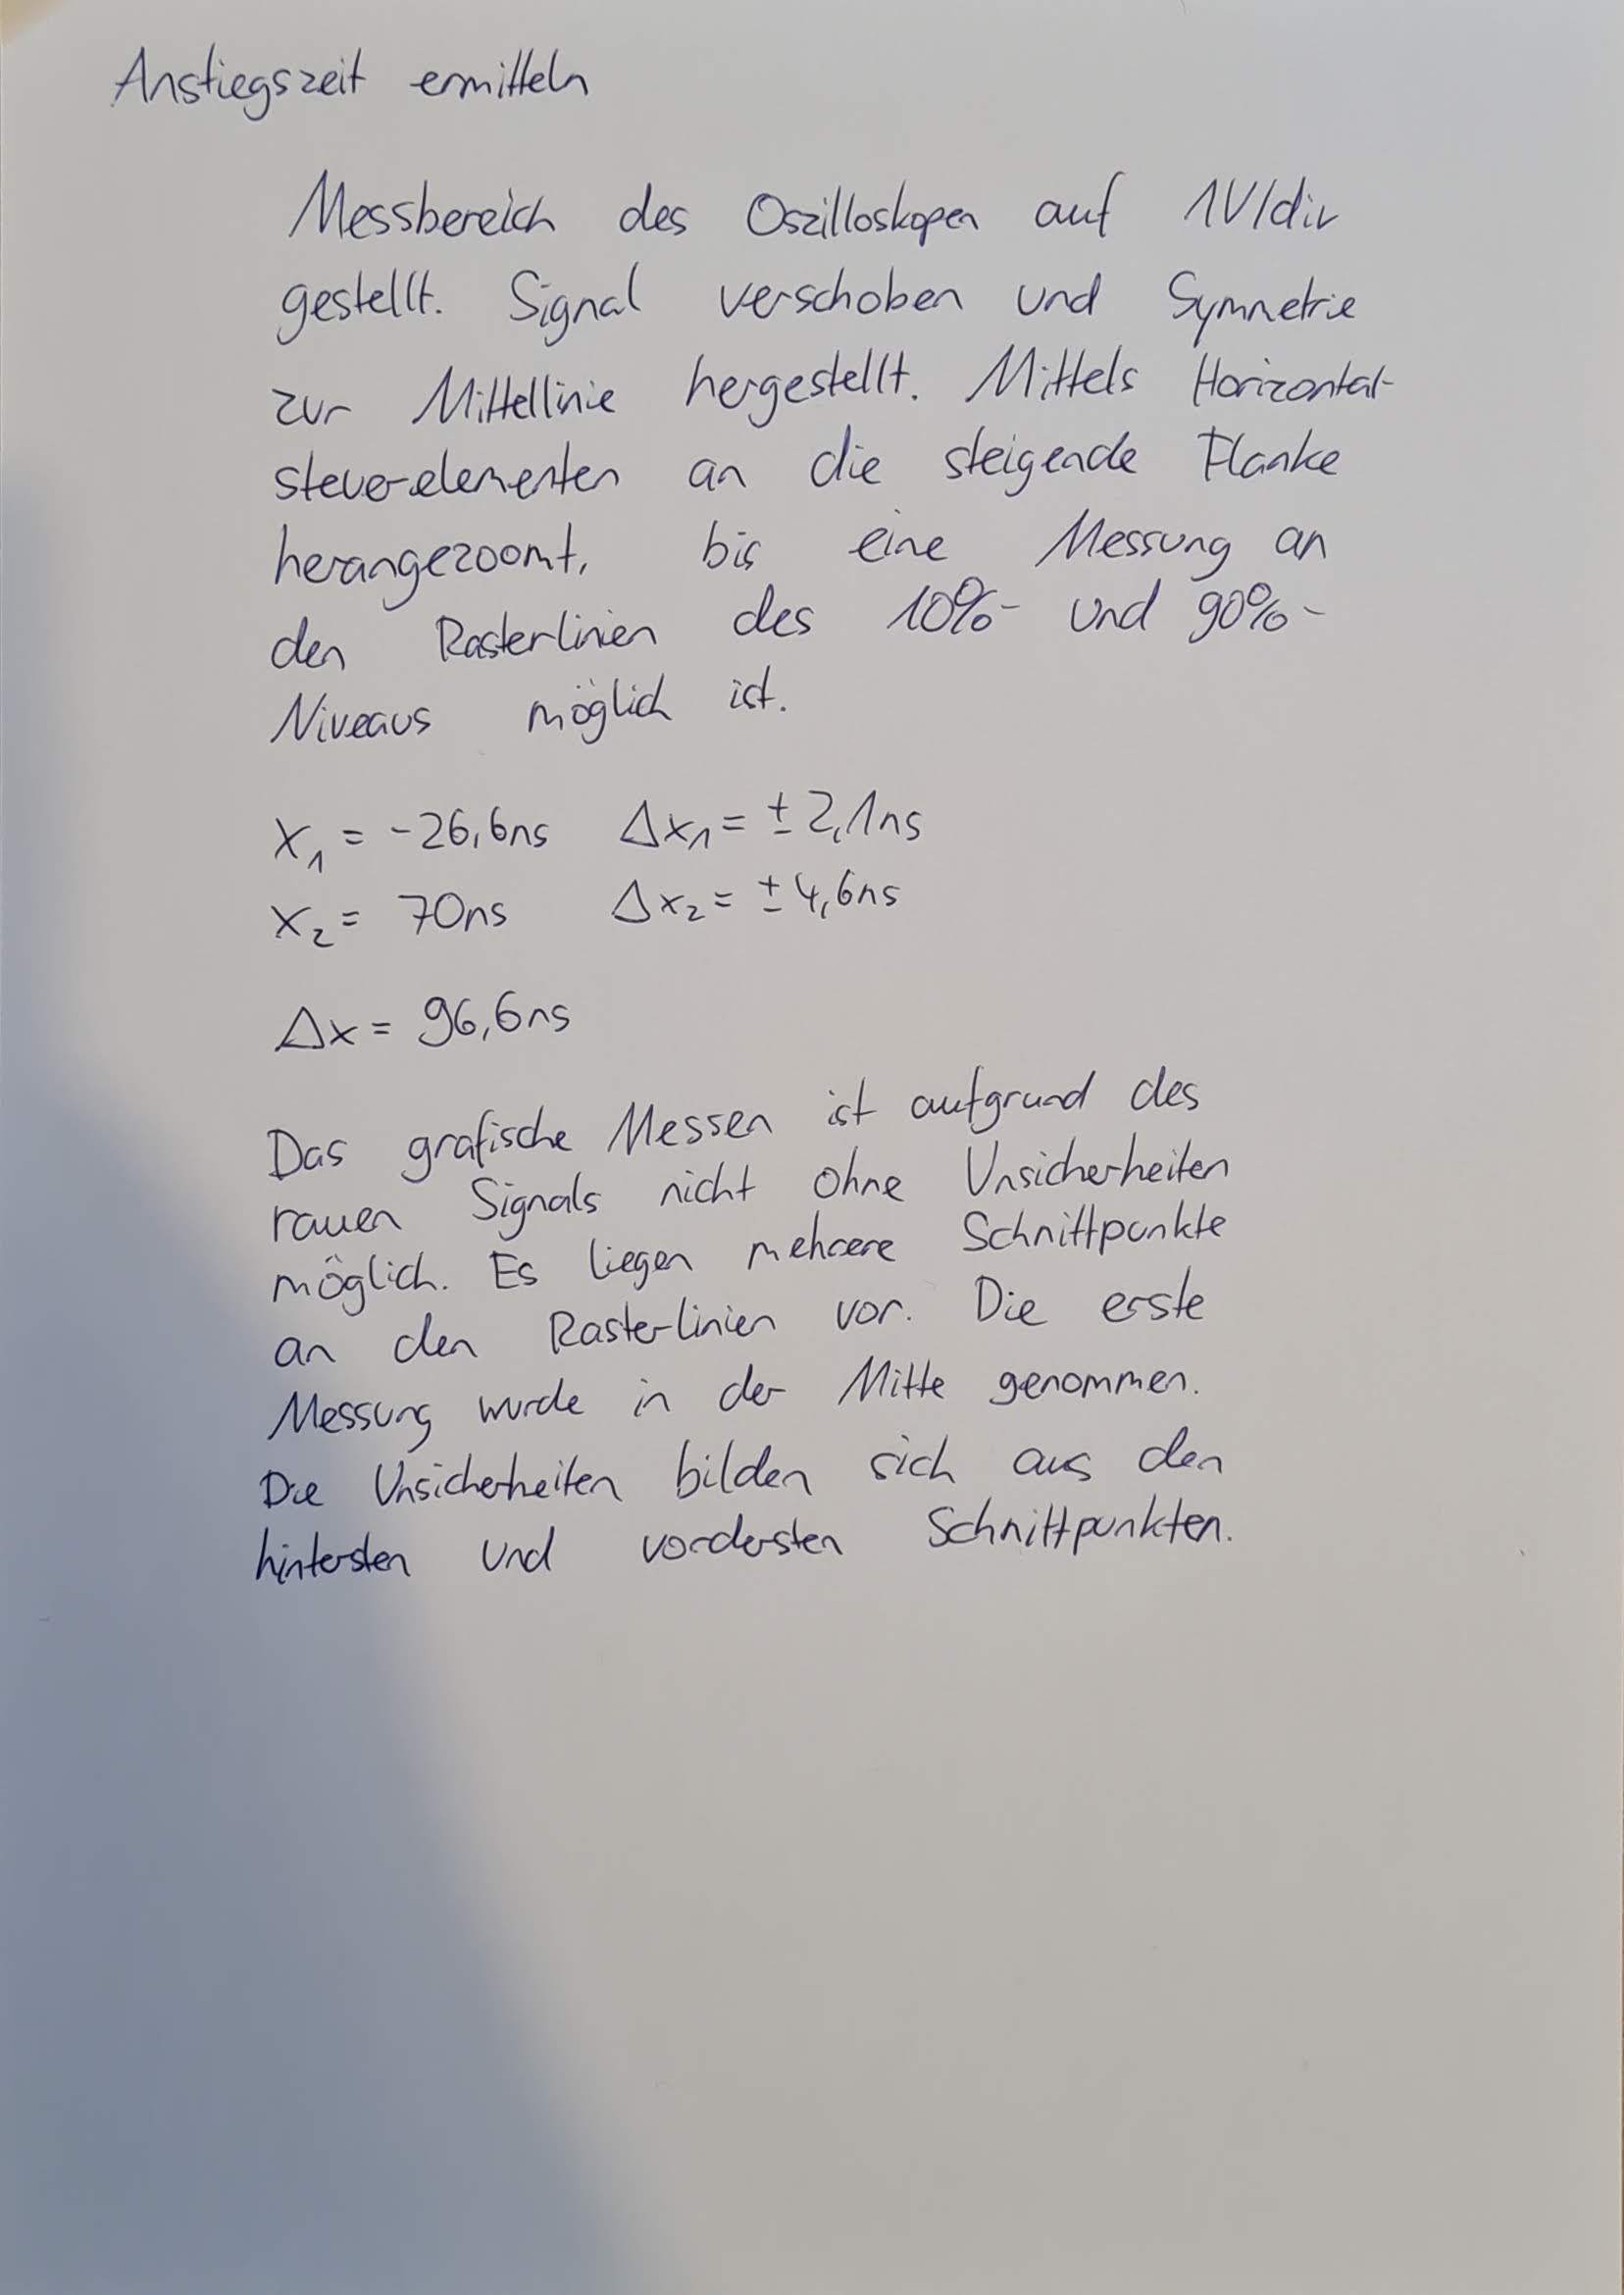 Anstiegszeit ermitteln
Messbereich des Oszilloskopen auf 1V/div
gestellt. Signal verschoben und Symmetrie
zur Mittellinie hergestellt. Mittels Horizontal-
steuerelementen an die steigende Flanke
herangezoomt, bis eine Messung an
den Rasterlinien des 10%- und 90%-
Niveaus möglich ist.
x₁ = -26,6ns Δx₁ = ± 2,1ns
x₂ = 70ns Δx₂ = ± 4,6ns
Δx = 96,6ns
Das grafische Messen ist aufgrund des
rauen Signals nicht ohne Unsicherheiten
möglich. Es liegen mehrere Schnittpunkte
an den Rasterlinien vor. Die erste
Messung wurde in der Mitte genommen.
Die Unsicherheiten bilden sich aus den
hintersten und vordersten Schnittpunkten.